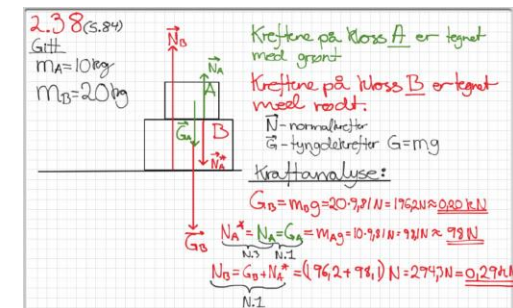 2.38 (S.84)
Gitt
mA=10kg
mB=20kg
N⃗B
N⃗A
A
G⃗A
B
N⃗A*
G⃗B
Kreftene på kloss A er tegnet
med grønt
Kreftene på kloss B er tegnet
med rødt.
N⃗ - normalkrefter
G⃗ - tyngdekrefter G=mg
Kraftanalyse:
GB=mBg=20·9,81N=196,2N≈0,20kN
NA*=NA=GA=mAg=10·9,81N=98,1N≈98N
N.3 N.1
NB=GB+NA*=(196,2+98,1)N=294,3N=0,29kN
N.1